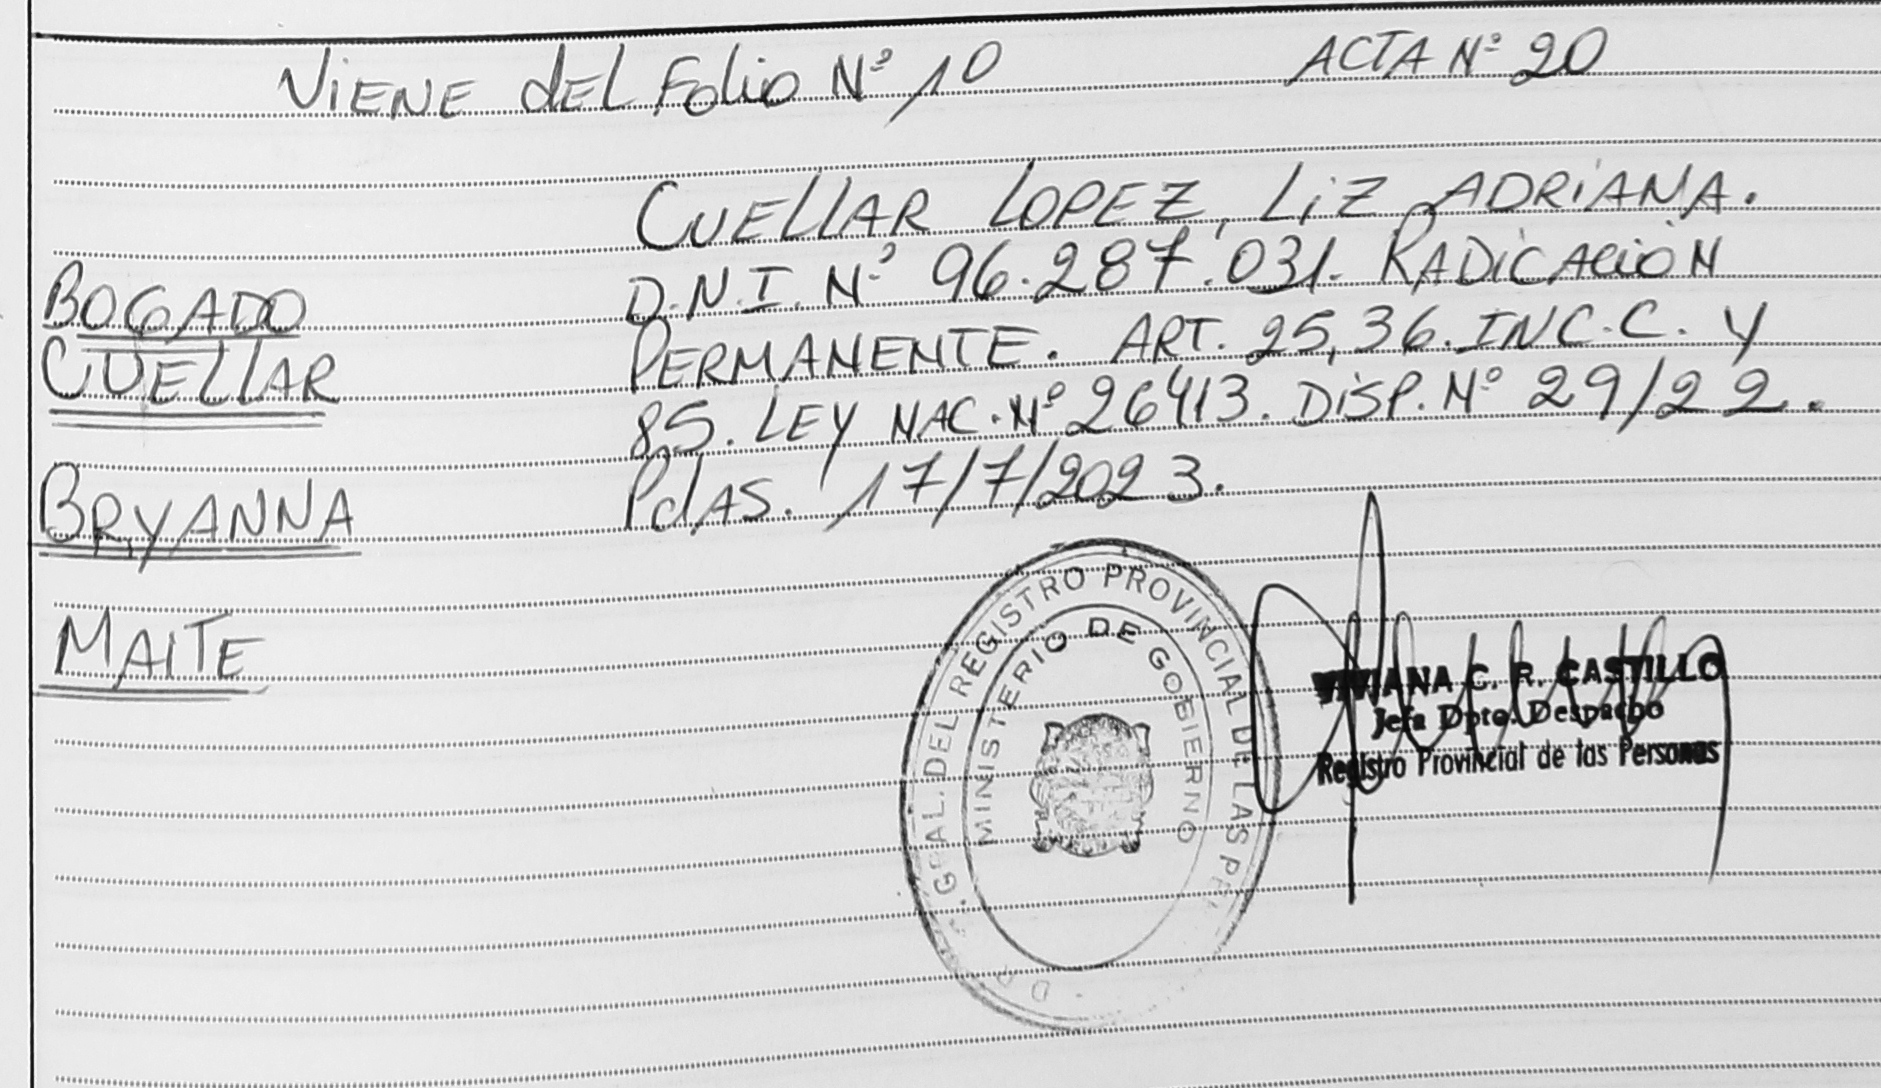 ViENE dEL Folio Nº 10
ACTA Nº 20
CUELLAR LOPEZ, LiZ ADRiANA.
D.N.I. Nº 96.287.031. RADiCACiÓN
PERMANENTE. ART. 25,36. INC.C. Y
85. LEY NAC. Nº 26413. DiSP. Nº 29/22.
PdAS. 17/7/2023.
BOGADO
CUELLAR
BRYANNA
MAITE
GRAL. DEL REGISTRO PROVINCIAL DE LAS
MINISTERIO DE GOBIERNO
VIVIANA C. R. CASTILLO
Jefa Dpto. Despacho
Registro Provincial de las Personas